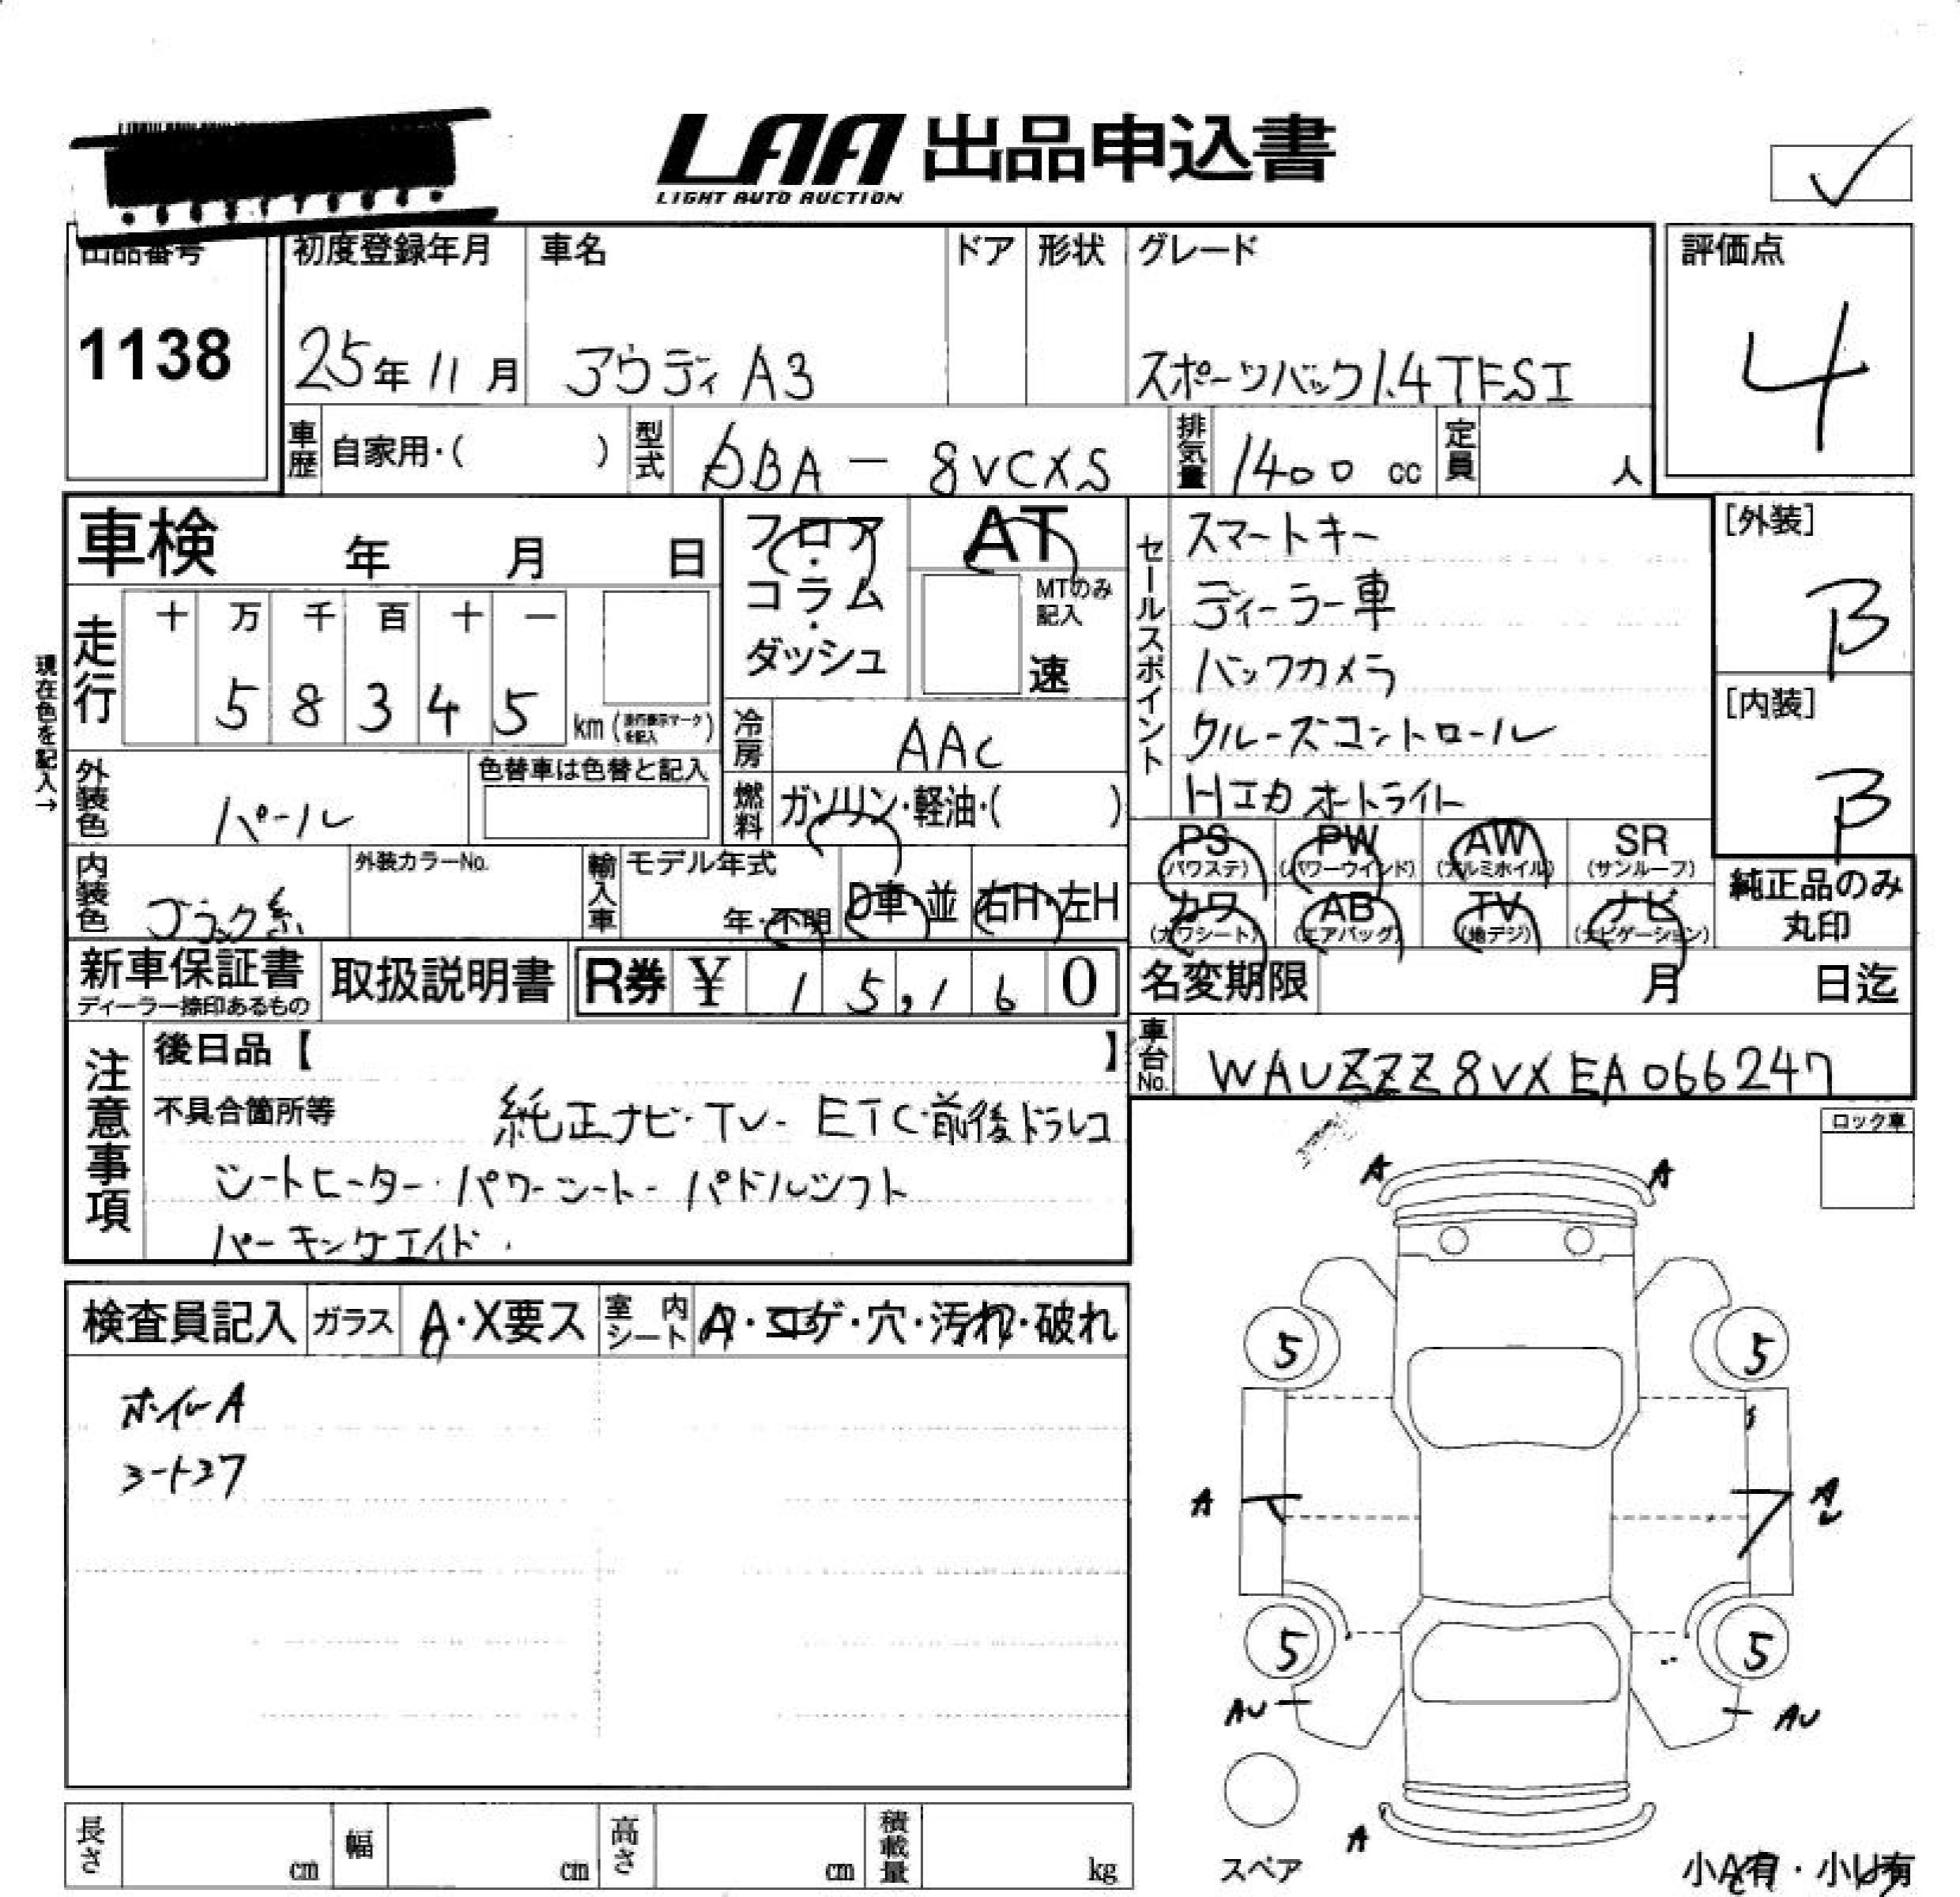 LAA 出品申込書
LIGHT AUTO AUCTION
出品番号
1138
初度登録年月
25年11月
車名
アウディ A3
ドア
形状
グレード
スポーツバック1.4TFSI
評価点
4
車歴 自家用・( )
型式 DBA-8VCXS
排気量 1400 cc
定員 人
車検 年 月 日
フロア・コラム・ダッシュ
AT
MTのみ記入
速
セールスポイント
スマートキー
ディーラー車
バックカメラ
クルーズコントロール
HIDオートライト
[外装]
B
[内装]
B
現在色を記入→
走行
十 万 千 百 十 一
5 8 3 4 5 km (走行表示マークを記入)
冷房 AAC
外装色 パール
色替車は色替と記入
燃料 ガソリン・軽油・( )
内装色 ブラック系
外装カラーNo.
輸入車
モデル年式
年・不明
D車・並
右H・左H
PS (パワステ)
PW (パワーウインド)
AW (アルミホイル)
SR (サンルーフ)
カワ (カワシート)
AB (エアバッグ)
TV (地デジ)
ナビ (ナビゲーション)
純正品のみ丸印
新車保証書
ディーラー捺印あるもの
取扱説明書
R券 ¥ 15,160
名変期限 月 日迄
車台No. WAUZZZ8VXEA066247
注意事項
後日品【 】
不具合箇所等 純正ナビ・TV・ETC・前後ドラレコ
シートヒーター・パワーシート・パドルシフト
パーキングエイド.
ロック車
検査員記入
ガラス A・X要ス
室内シート A・コゲ・穴・汚れ・破れ
ホイルA
A A
5 5
A
5 5
AU AU
A
スペア
長さ cm
幅 cm
高さ cm
積載量 kg
小A有・小U有